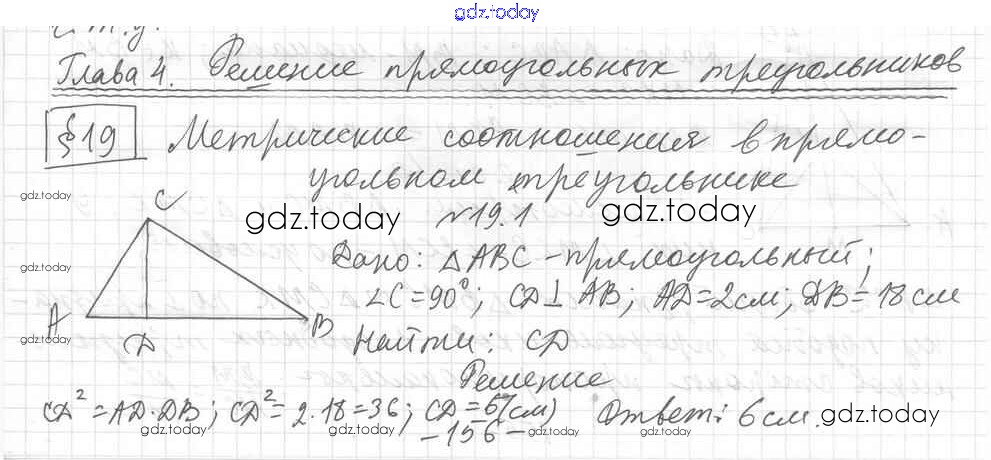 gdz.today
ч.т.д.
Глава 4. Решение прямоугольных треугольников
§19 Метрические соотношения в прямо-
угольном треугольнике
gdz.today
gdz.today gdz.today
C
№19.1
Дано: △ABC - прямоугольный;
gdz.today
∠C=90°; CD⊥AB; AD=2см; DB=18см
A D B
gdz.today
Найти: CD
Решение
CD²=AD·DB; CD²=2·18=36; CD=6(см) Ответ: 6 см.
gdz.today gdz.today gdz.today gdz.today gdz.today
-156-